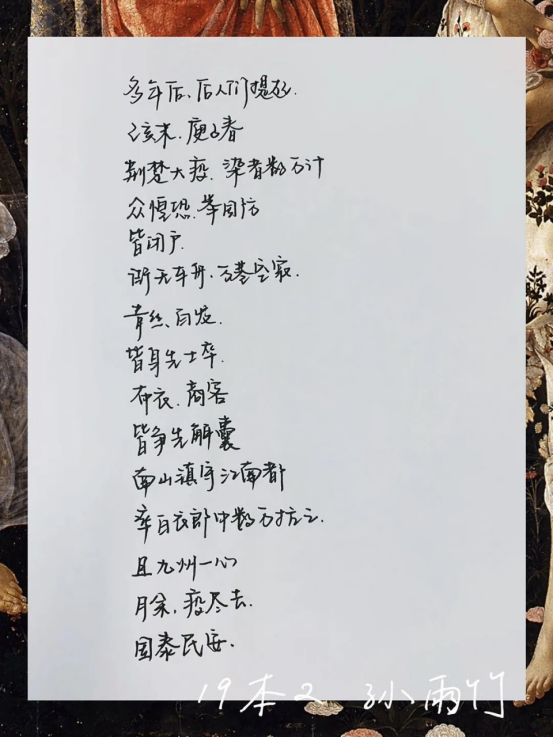 多年后,后人们提起.
己亥末,庚子春
荆楚大疫,染者数万计
众惶恐,举国防
皆闭户.
街无车舟,万巷空寂.
青丝、白发.
皆身先士卒.
布衣、商客
皆争先解囊
南山镇守江南都
率白衣郎中数万抗之.
且九州一心
月余,疫尽去.
国泰民安.
19本2 孙雨竹